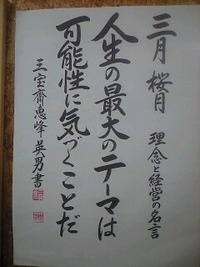 三月 桜月
理念と経営の名言
人生の最大のテーマは
可能性に気づくことだ
三宝齋恵峰英男書